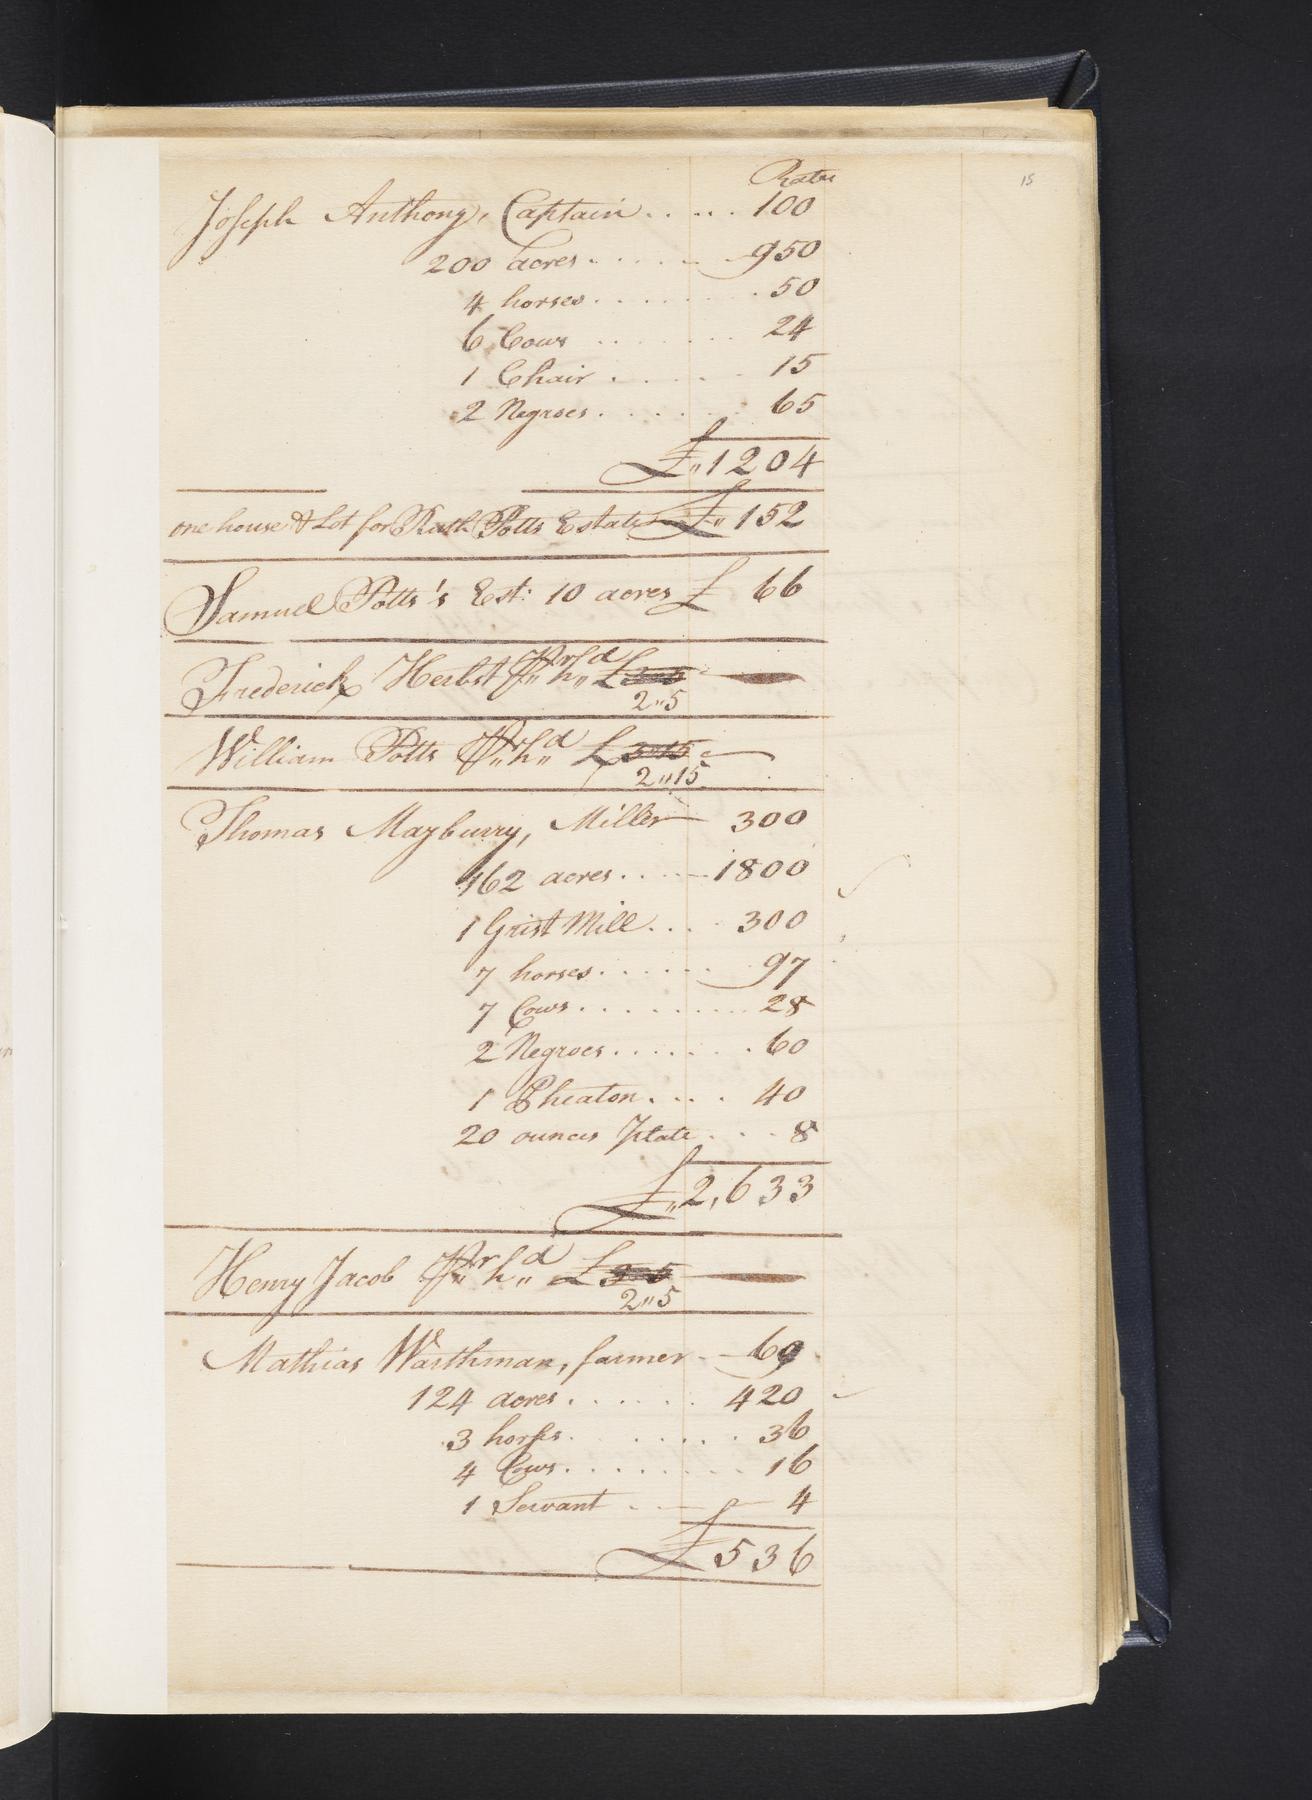 Rates
15
Joseph Anthony, Captain..... 100
200 acres...... 950
4 horses........ 50
6 Cows........ 24
1 Chair...... 15
2 Negroes...... 65
£"1204
one house & Lot for Ruth Potts Estate £"152
Samuel Potts's Est: 10 acres £ 66
Frederick Herbst Pr"hd" £
2"5
William Potts Pr"hd" £
2"15
Thomas Mayburry, Miller 300
462 acres.... 1800
1 Grist Mill.... 300
7 horses...... 97
7 Cows......... 28
2 Negroes....... 60
1 Pheaton.... 40
20 ounces Plate.... 8
£"2,633
Henry Jacob Pr"hd" £
2"5
Mathias Warthman, farmer 60
124 acres...... 420
3 horses...... 36
4 Cows......... 16
1 Servant 4
£536